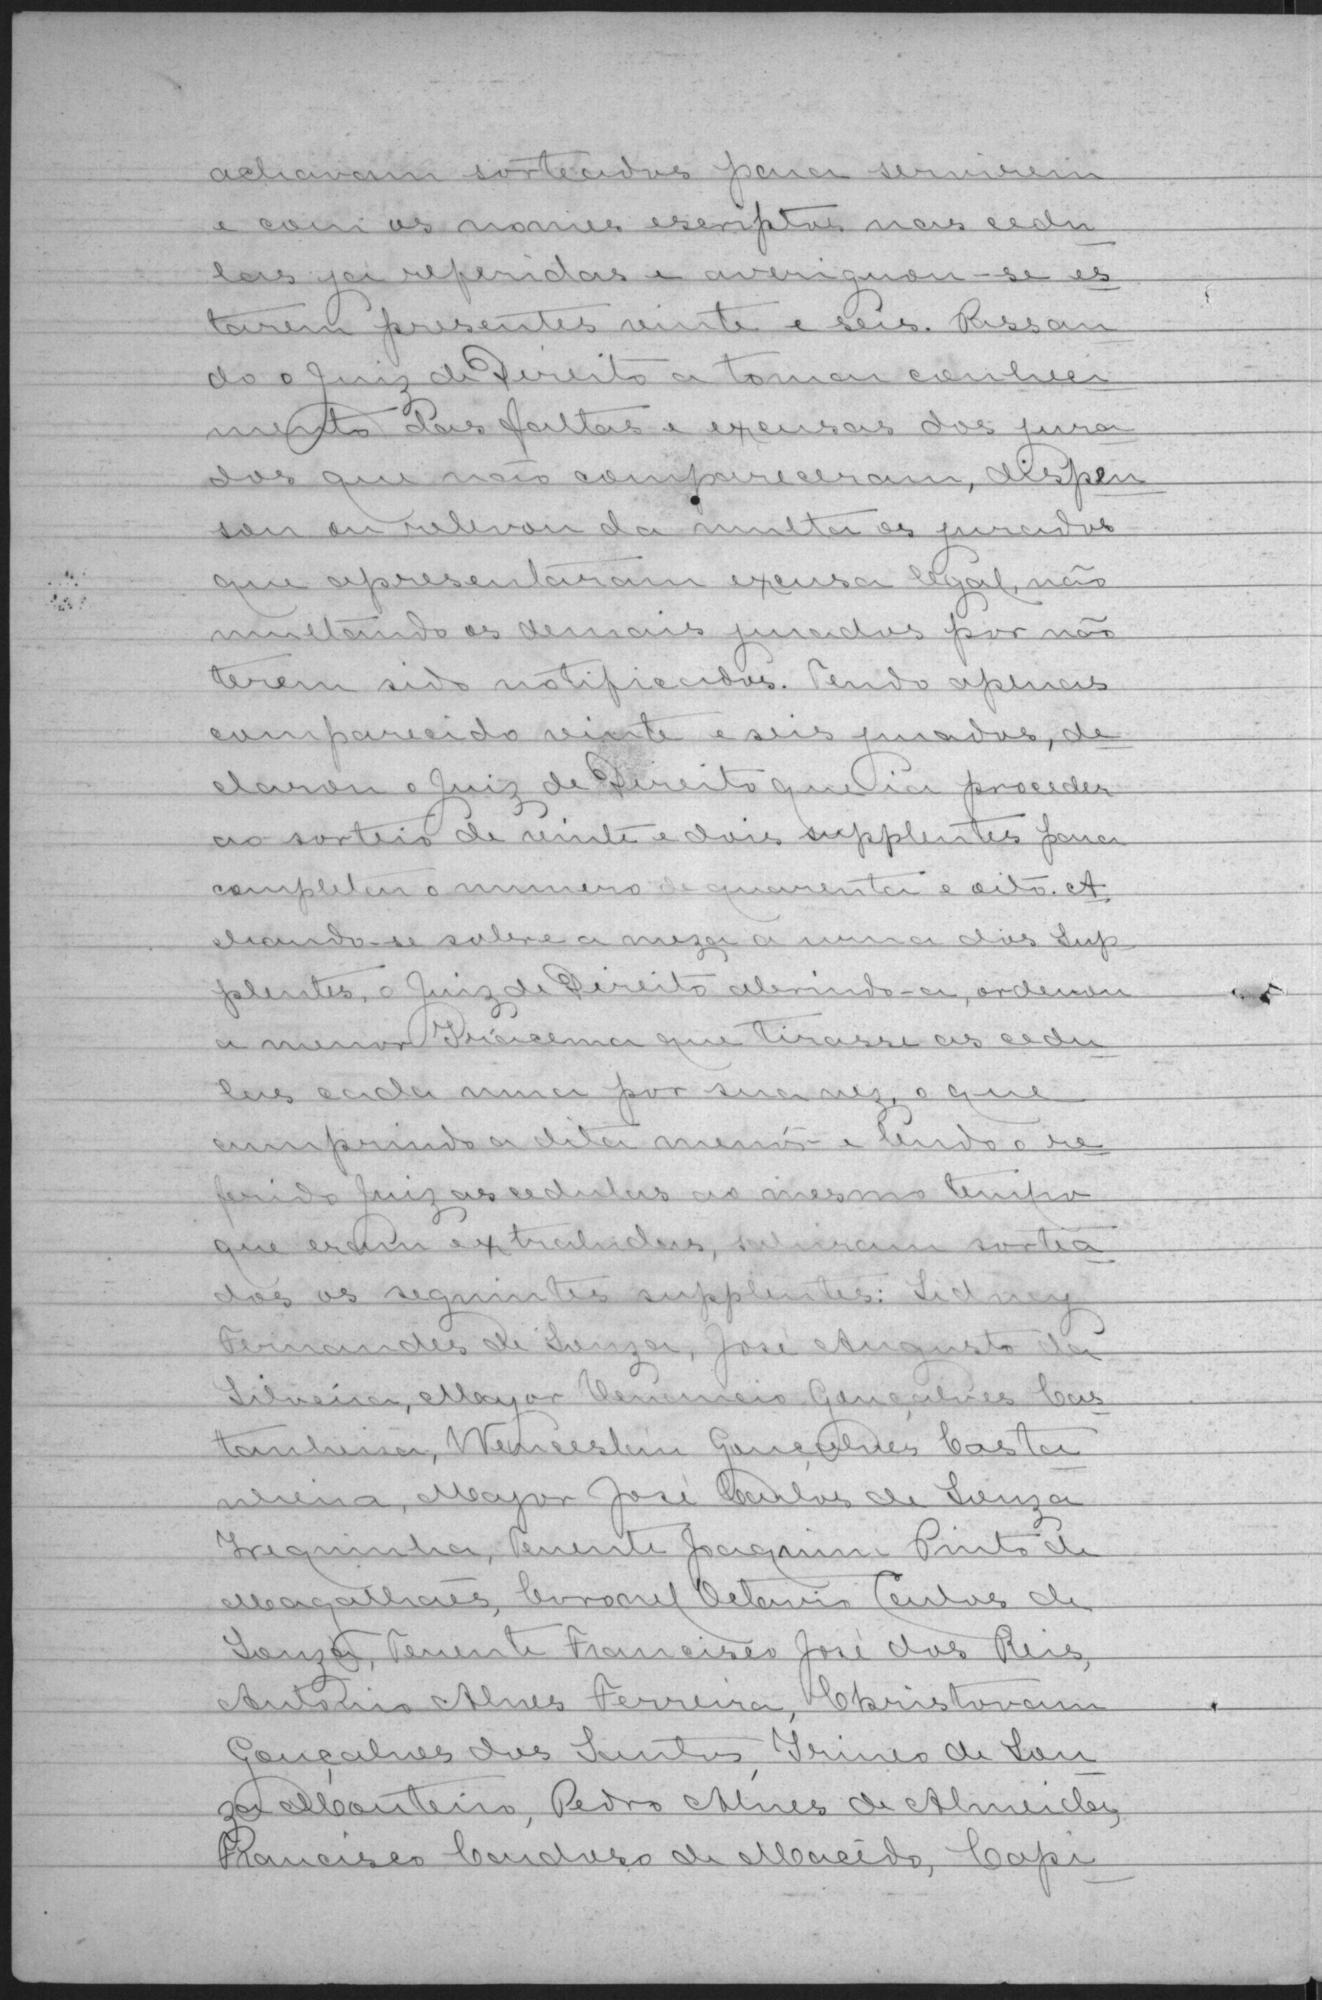 achavam sorteados para servirem
e com os nomes escriptos nas cedu
las ja referidas e averiguou-se es
tarem presentes vinte e seis. Passan
do o Juiz de Direito a tomar conheci
mento das faltas e excusas dos jura
dos que não compareceram, dispen
sou ou relevou da multa os jurados
que apresentaram excusa legal, não
multando os demais jurados por não
terem sido notificados. Tendo apenas
comparecido vinte e seis jurados, de
clarou o Juiz de Direito que ia proceder
ao sorteio de vinte e dois supplentes para
completar o numero de quarenta e oito. A
chando-se sobre a meza a urna dos Sup
plentes, o Juiz de Direito abrindo-a, ordenou
a menor Iracema que tirasse as cedu
las cada uma por sua vez, o que
cumprindo a dita menór e lendo o re
ferido Juiz as cedulas ao mesmo tempo
que eram extrahidas, sahiram sortea
dos os seguintes supplentes: Sidney
Fernandes de Souza, José Augusto da
Silveira, Mayor Venancio Gonçalves Cas
tanheira, Wenceslau Gonçalves Casta
nheira, Major José Carlos de Souza
Trequinha, Tenente Joaquim Pinto de
Magalhães, Coronel Octavio Carlos de
Souza, Tenente Francisco José dos Reis,
Antonio Alves Ferreira, Christovam
Gonçalves dos Santos, Irineo de Sou
za Monteiro, Pedro Alves de Almeida,
Francisco Cardoso de Macêdo, Capi